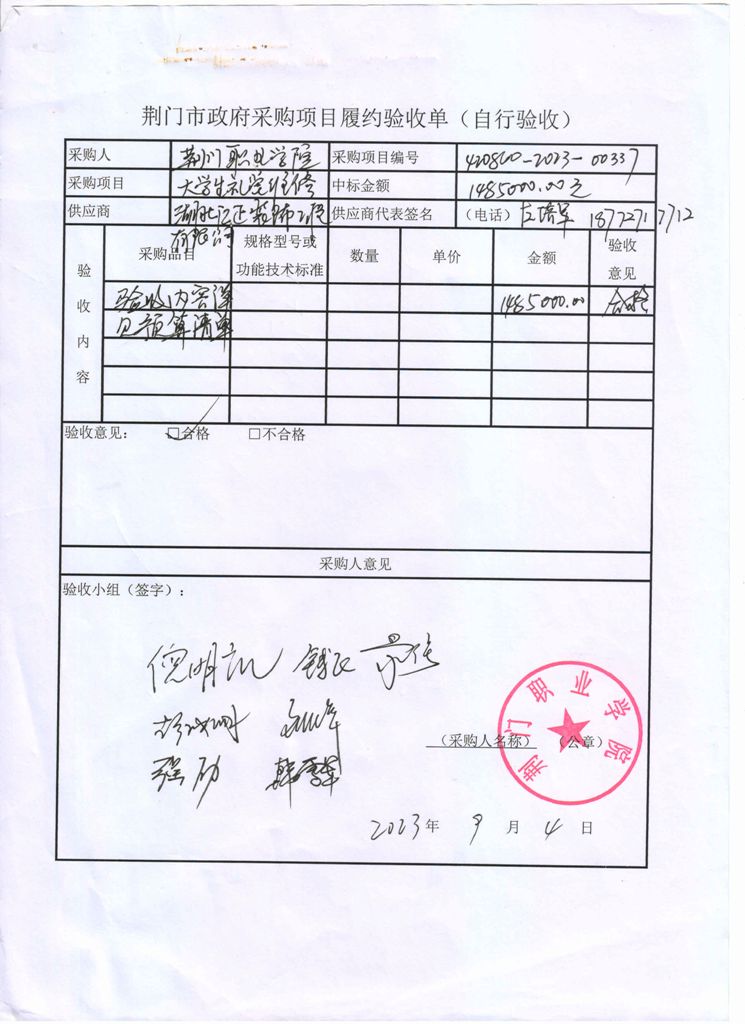 荆门市政府采购项目履约验收单（自行验收）
采购人 荆门职业学院 采购项目编号 420800-2023-00337
采购项目 大学生礼堂维修 中标金额 1485000.00元
供应商 供应商代表签名 （电话）
有限公司
验收内容 采购品目 规格型号或功能技术标准 数量 单价 金额 验收意见
验收内容详 1485000.00 合格
见预算清单
验收意见： ☑合格 □不合格
采购人意见
验收小组（签字）：
荆门职业学院
（采购人名称） （公章）
2023年 9 月 4 日